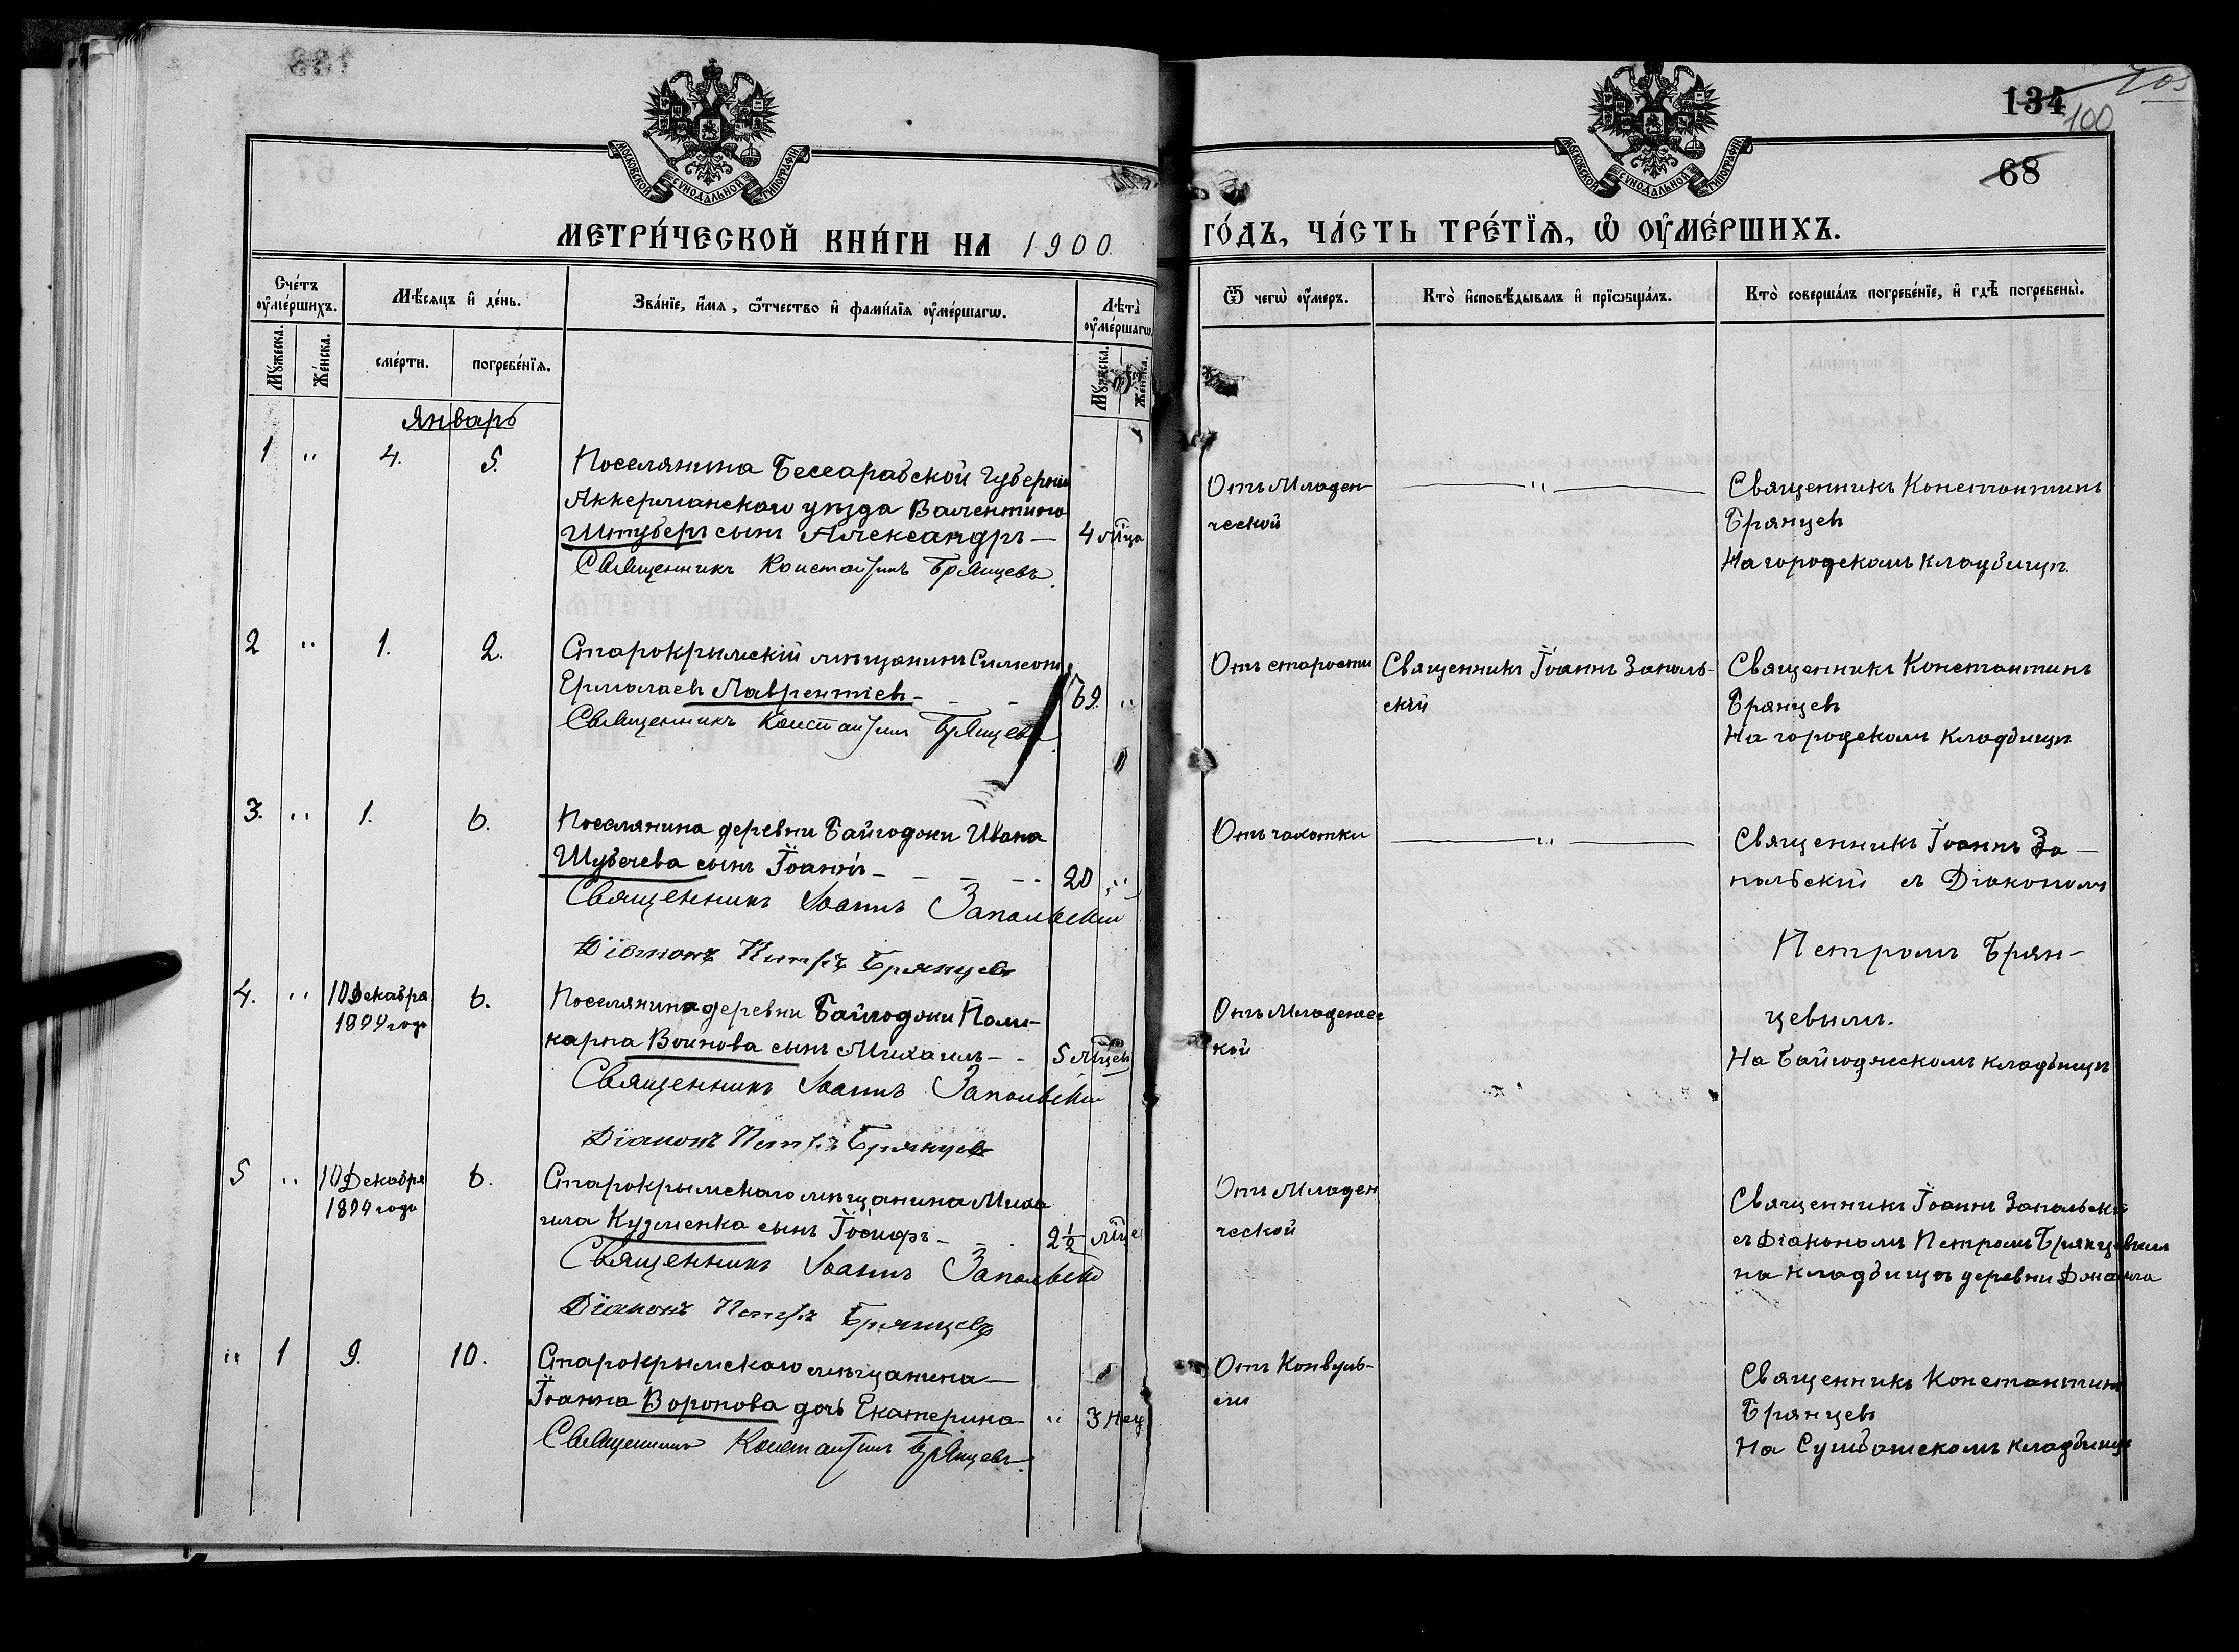 134
100
68
МОСКОВСКОЙ СѴНОДАЛЬНОЙ ТИПОГРАФІИ
МОСКОВСКОЙ СѴНОДАЛЬНОЙ ТИПОГРАФІИ
МЕТРИ́ЧЕСКОЙ КНИ́ГИ НА 1900 ГО́ДЪ, ЧА́СТЬ ТРЕ́ТІѦ, Ѡ҆ ОУ҆МЕ́РШИХЪ.
Сче́тъ оу҆ме́ршихъ.
Му́жеска.
Же́нска.
Мѣ́сяцъ и҆ де́нь.
сме́рти.
погребе́нїѧ.
Зва́нїе, и҆́мѧ, ѻ҆́тчество и҆ фамі́лїѧ оу҆ме́ршагѡ.
Лѣ́та оу҆ме́ршагѡ.
Му́жеска.
Же́нска.
Ѿ чегѡ̀ оу҆́меръ.
Кто̀ и҆сповѣ́дывалъ и҆ прїѡбща́лъ.
Кто̀ соверша́лъ погребе́нїе, и҆ гдѣ̀ погребены̀.
Январь
1 " 4. 5.
Поселянина Бессарабской Губерніи
Аккерманскаго уѣзда Валентина
Штубер сынъ Александръ —
4 м̃ца
Священникъ Константинъ Брянцевъ.
Отъ Младен
ческой
— " —
Священникъ Константинъ
Брянцевъ
На городскомъ кладбищѣ.
2 " 1. 2.
Старокрымскій мѣщанинъ Симеонъ
Ермолаевъ Лаврентіевъ -
69. "
Священникъ Константинъ Брянцевъ
Отъ старости
Священникъ Іоаннъ Заполь-
скій
Священникъ Константинъ
Брянцевъ
На городскомъ кладбищѣ
3. " 1. 6.
Поселянина деревни Байгоджи Ивана
Шубечева сынъ Іоаннъ -
20 "
Священникъ Іоаннъ Запольскій
Діаконъ Петръ Брянцевъ
Отъ чахотки
— " —
Священникъ Іоаннъ За-
польскій съ Діакономъ
Петромъ Брян-
цевымъ.
На Байгоджскомъ кладбищѣ
4. " 10 Декабря 6.
1899 года
Поселянина деревни Байгоджи Поли-
карпа Воинова сынъ Михаилъ - -
5 м̃цевъ
Священникъ Іоаннъ Запольскій
Діаконъ Петръ Брянцевъ
Отъ Младенчес
кой
5 " 10 Декабря 6.
1899 года
Старокрымскаго мѣщанина Миха
ила Кузменка сынъ Іосифъ -
2½ м̃це
Священникъ Іоаннъ Запольскій
Діаконъ Петръ Брянцевъ
Отъ Младен
ческой
Священникъ Іоаннъ Запольскій
съ Діакономъ Петромъ Брянцевымъ
на кладбищѣ деревни
" 1 9. 10.
Старокрымскаго мѣщанина —
Іоанна Воронова дочь Екатерина -
" 3 нед
Священникъ Константинъ Брянцевъ.
Отъ Конвуль-
сіи
Священникъ Константинъ
Брянцевъ
На Султанскомъ кладбищѣ